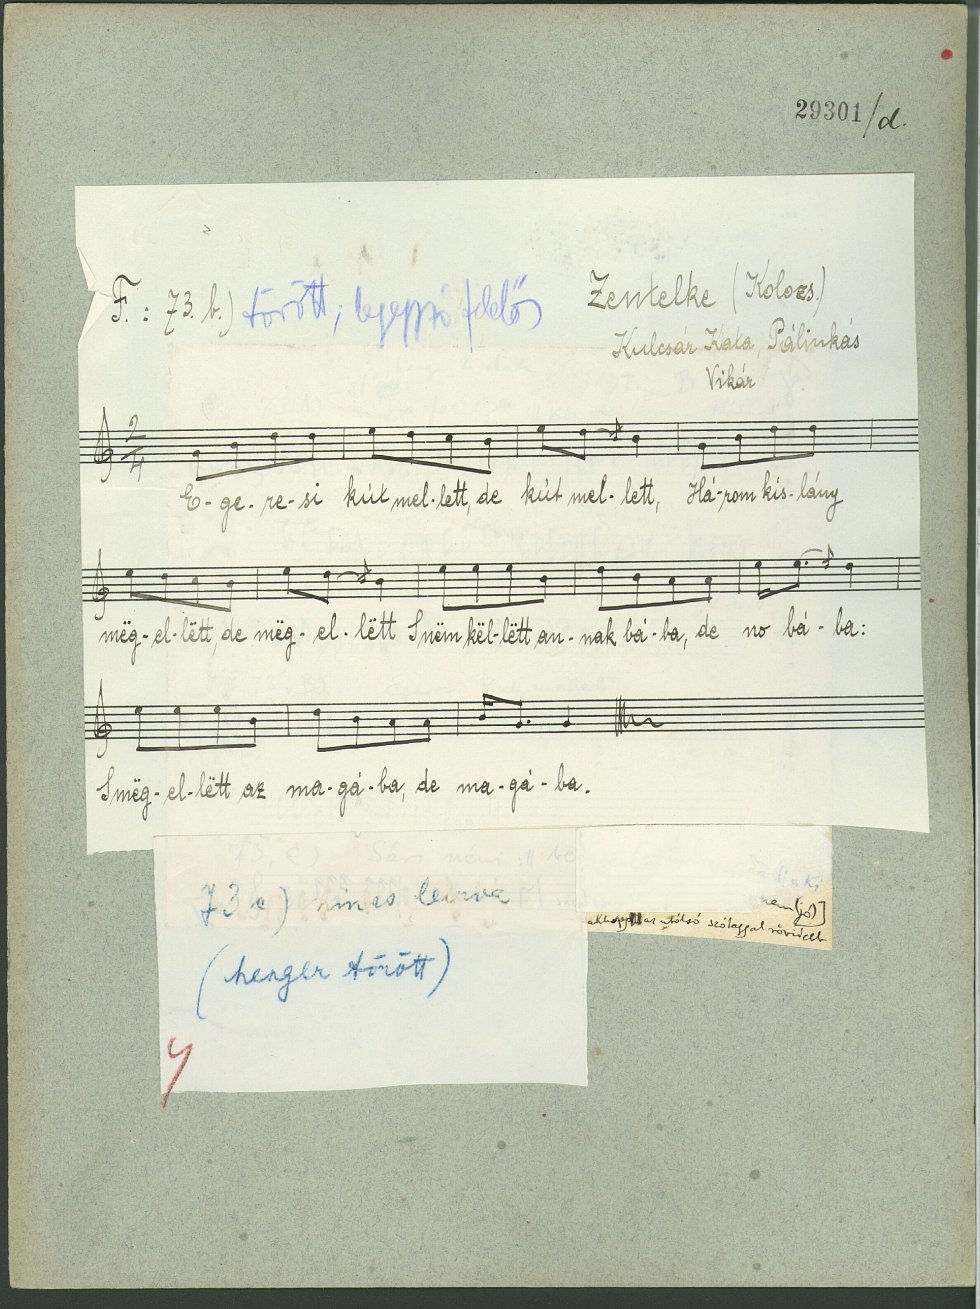 29301/d.
F.: 73. b.) törött;
Zentelke (Kolozs.)
Kulcsár Kata, Pálinkás
Vikár
2
4
E-ge-re-si kút mel-lett, de kút mel-lett, Há-rom kis-lány
mëg-el-lëtt, de mëg-el-lëtt Snëm kël-lëtt an-nak bá-ba, de no bá-ba:
Smëg-el-lëtt az ma-gá-ba, de ma-gá-ba.
73 c) nincs leírva
(henger törött)
nem (jó)]
az utólsó szótaggal rövidebb